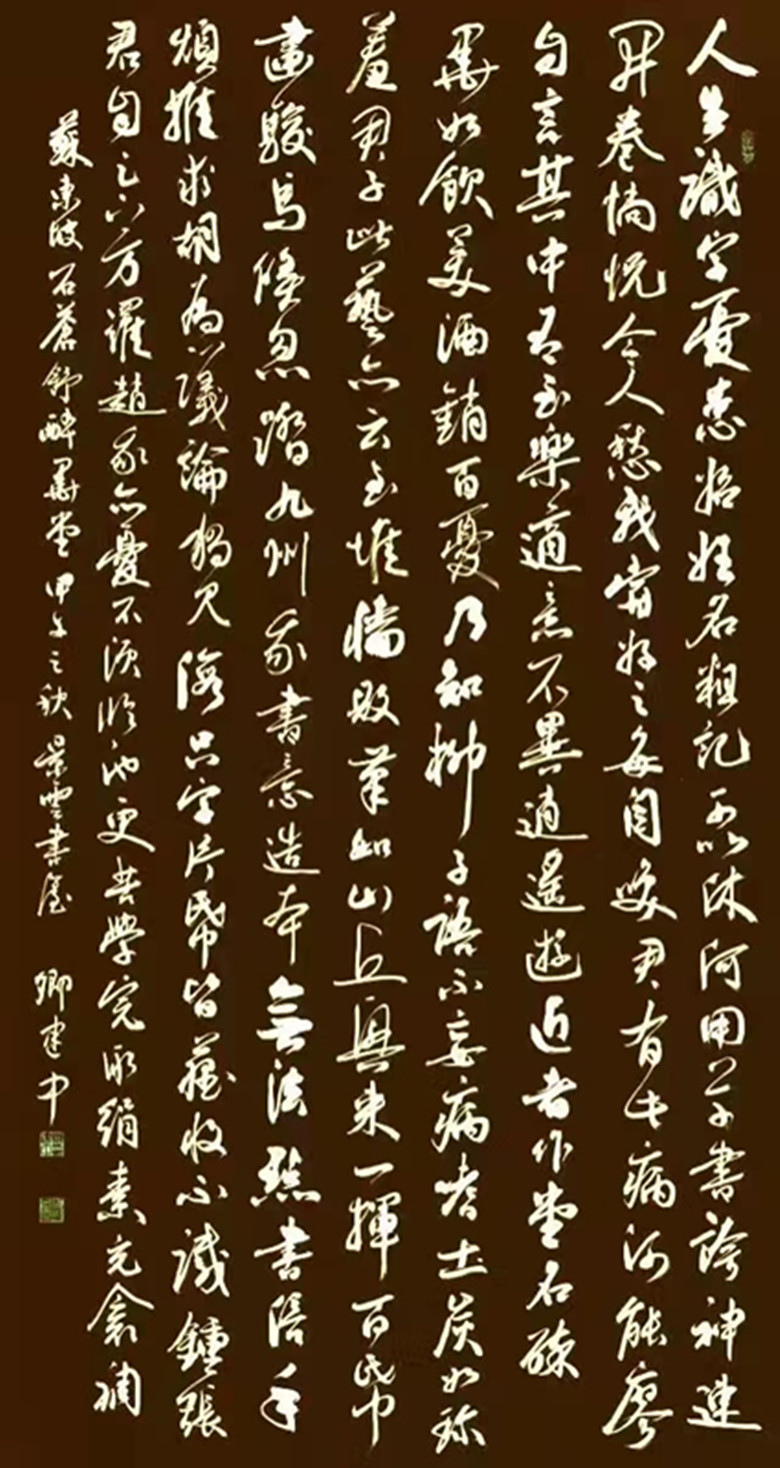 人生識字憂患始姓名粗記可以休何用草書誇神速
開卷惝怳令人愁我嘗好之每自笑君有此病何能瘳
自言其中有至樂適意不異逍遙遊近者作堂名醉
墨如飲美酒銷百憂乃知柳子語不妄病嗜土炭如珍
羞君于此藝亦云至堆牆敗筆如山丘興來一揮百紙
盡駿馬倏忽踏九州我書意造本無法點畫信手
煩推求胡為議論獨見假只字片紙皆藏收不減鍾張
君自足下方羅趙我亦優不須臨池更苦學完取絹素充衾裯
蘇東坡石蒼舒醉墨堂甲午之秋景雲書屋 卿建中